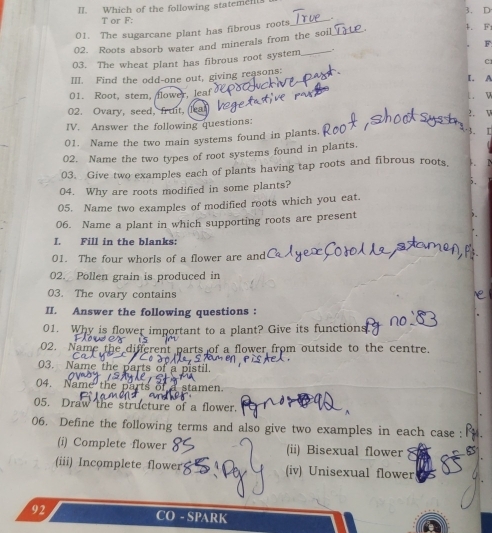 II. Which of the following statements
T or F:
01. The sugarcane plant has fibrous roots True
02. Roots absorb water and minerals from the soil True.
03. The wheat plant has fibrous root system
III. Find the odd-one out, giving reasons:
01. Root, stem, flower, leaf reproductive part.
02. Ovary, seed, fruit, leaf vegetative part
IV. Answer the following questions:
01. Name the two main systems found in plants. Root, shoot system
02. Name the two types of root systems found in plants.
03. Give two examples each of plants having tap roots and fibrous roots.
04. Why are roots modified in some plants?
05. Name two examples of modified roots which you eat.
06. Name a plant in which supporting roots are present
I. Fill in the blanks:
01. The four whorls of a flower are and Calyex Corolle, stamen,
02. Pollen grain is produced in
03. The ovary contains
II. Answer the following questions :
01. Why is flower important to a plant? Give its functions Pg no:83
Flower is
02. Name the different parts of a flower from outside to the centre.
calyex, corolle, stamen, pistel.
03. Name the parts of a pistil.
ovary, style, stigma
04. Name the parts of a stamen.
Filament anther.
05. Draw the structure of a flower. Pg no 92.
06. Define the following terms and also give two examples in each case : Pg
(i) Complete flower 85
(ii) Bisexual flower 85
(iii) Incomplete flower 85 Pg
(iv) Unisexual flower 85
92
CO - SPARK